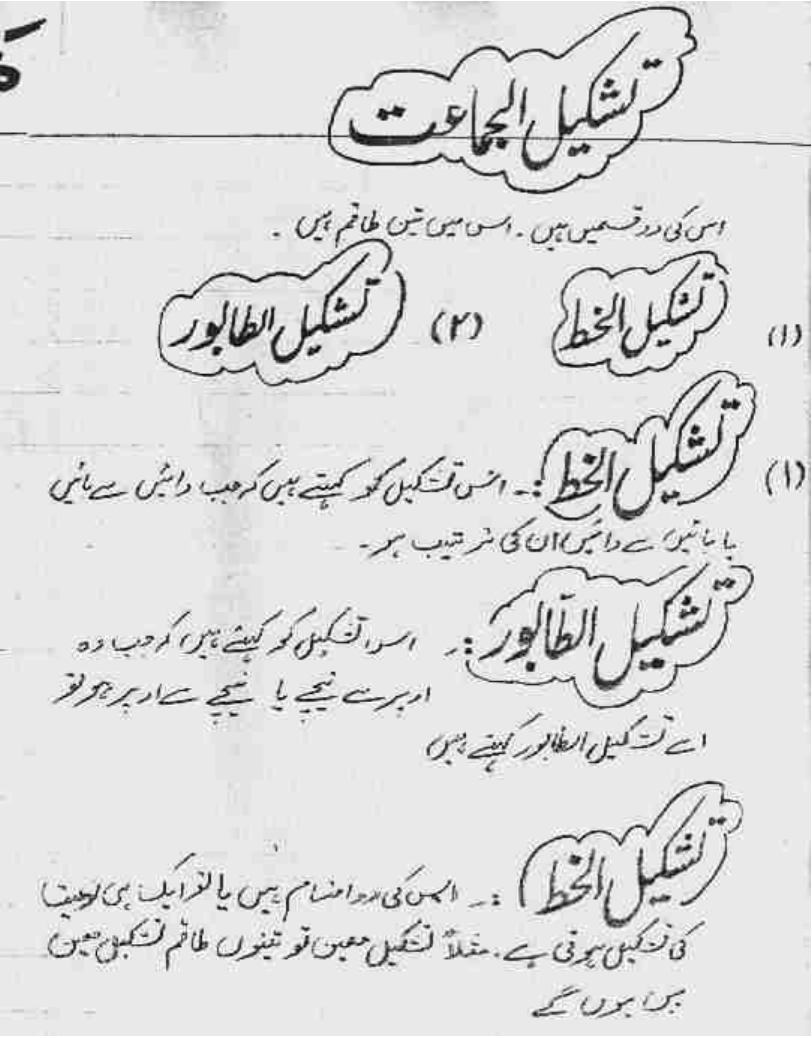 تشکیل الجماعت
اس کی دو قسمیں ہیں ۔ اس میں تین طاقم ہیں ۔
(۱) تشکیل الخط (۲) تشکیل الطابور
(۱) تشکیل الخط :۔ اس تشکیل کو کہتے ہیں کہ جب دائیں سے بائیں
یا بائیں سے دائیں ان کی ترتیب ہو ۔
تشکیل الطّابور :۔ اس تشکیل کو کہتے ہیں کہ جب وہ
اوپر سے نیچے یا نیچے سے اوپر ہو تو
اسے تشکیل الطابور کہتے ہیں
تشکیل الخط :۔ اس کی دو اقسام ہیں یا تو ایک ہی نوعیت
کی تشکیل ہوتی ہے ۔ مثلاً تشکیل معین تو تینوں طاقم تشکیل معین
میں ہوں گے